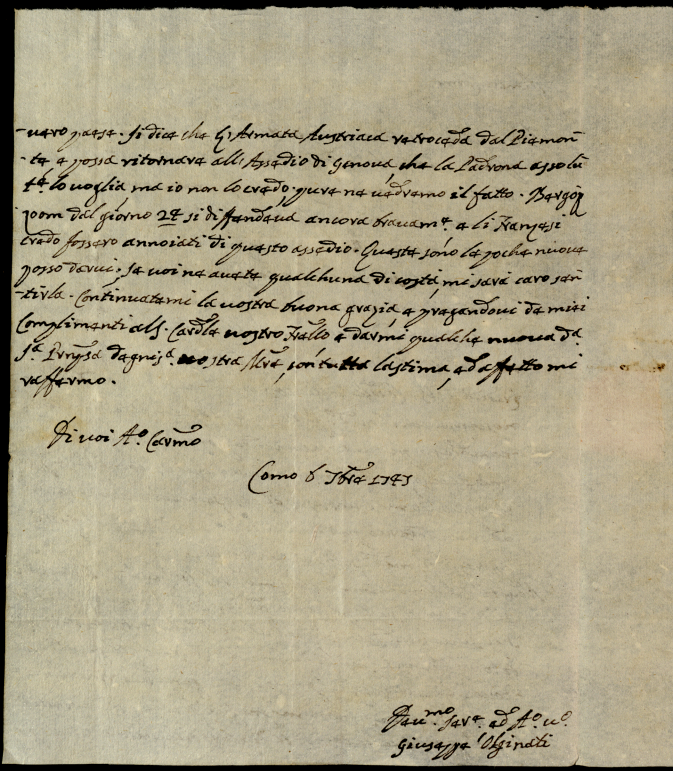 -vero paese. Si dice che l'Armata Austriaca retroceda dal Piemon-
-te e possa ritornare all'Assedio di Genova, che la Padrona assolu-
-ta lo voglia, ma io non lo credo, pure ne vedremo il fatto. Bergop
zoom dal giorno 24 si diffendeva ancora bravam.te e li Franzesi
credo fossero annoiati di questo assedio. Queste sono le poche nuove
posso darvi. Se voi ne avete qualchuna di costì, mi sarà caro sen
-tirla. Continuatemi la vostra buona grazia e pregandovi de miei
Complimenti al S. Cardle vostro Frello e darmi qualche nuova da
S.a Prnpsa degnis.a vostra Mre, con tutta la stima, ed affetto mi
raffermo.
Di voi A.o Carmo
Como 6 7bre 1747
Devmo. Serv.e ed A.o v.o
Giuseppe Olginati